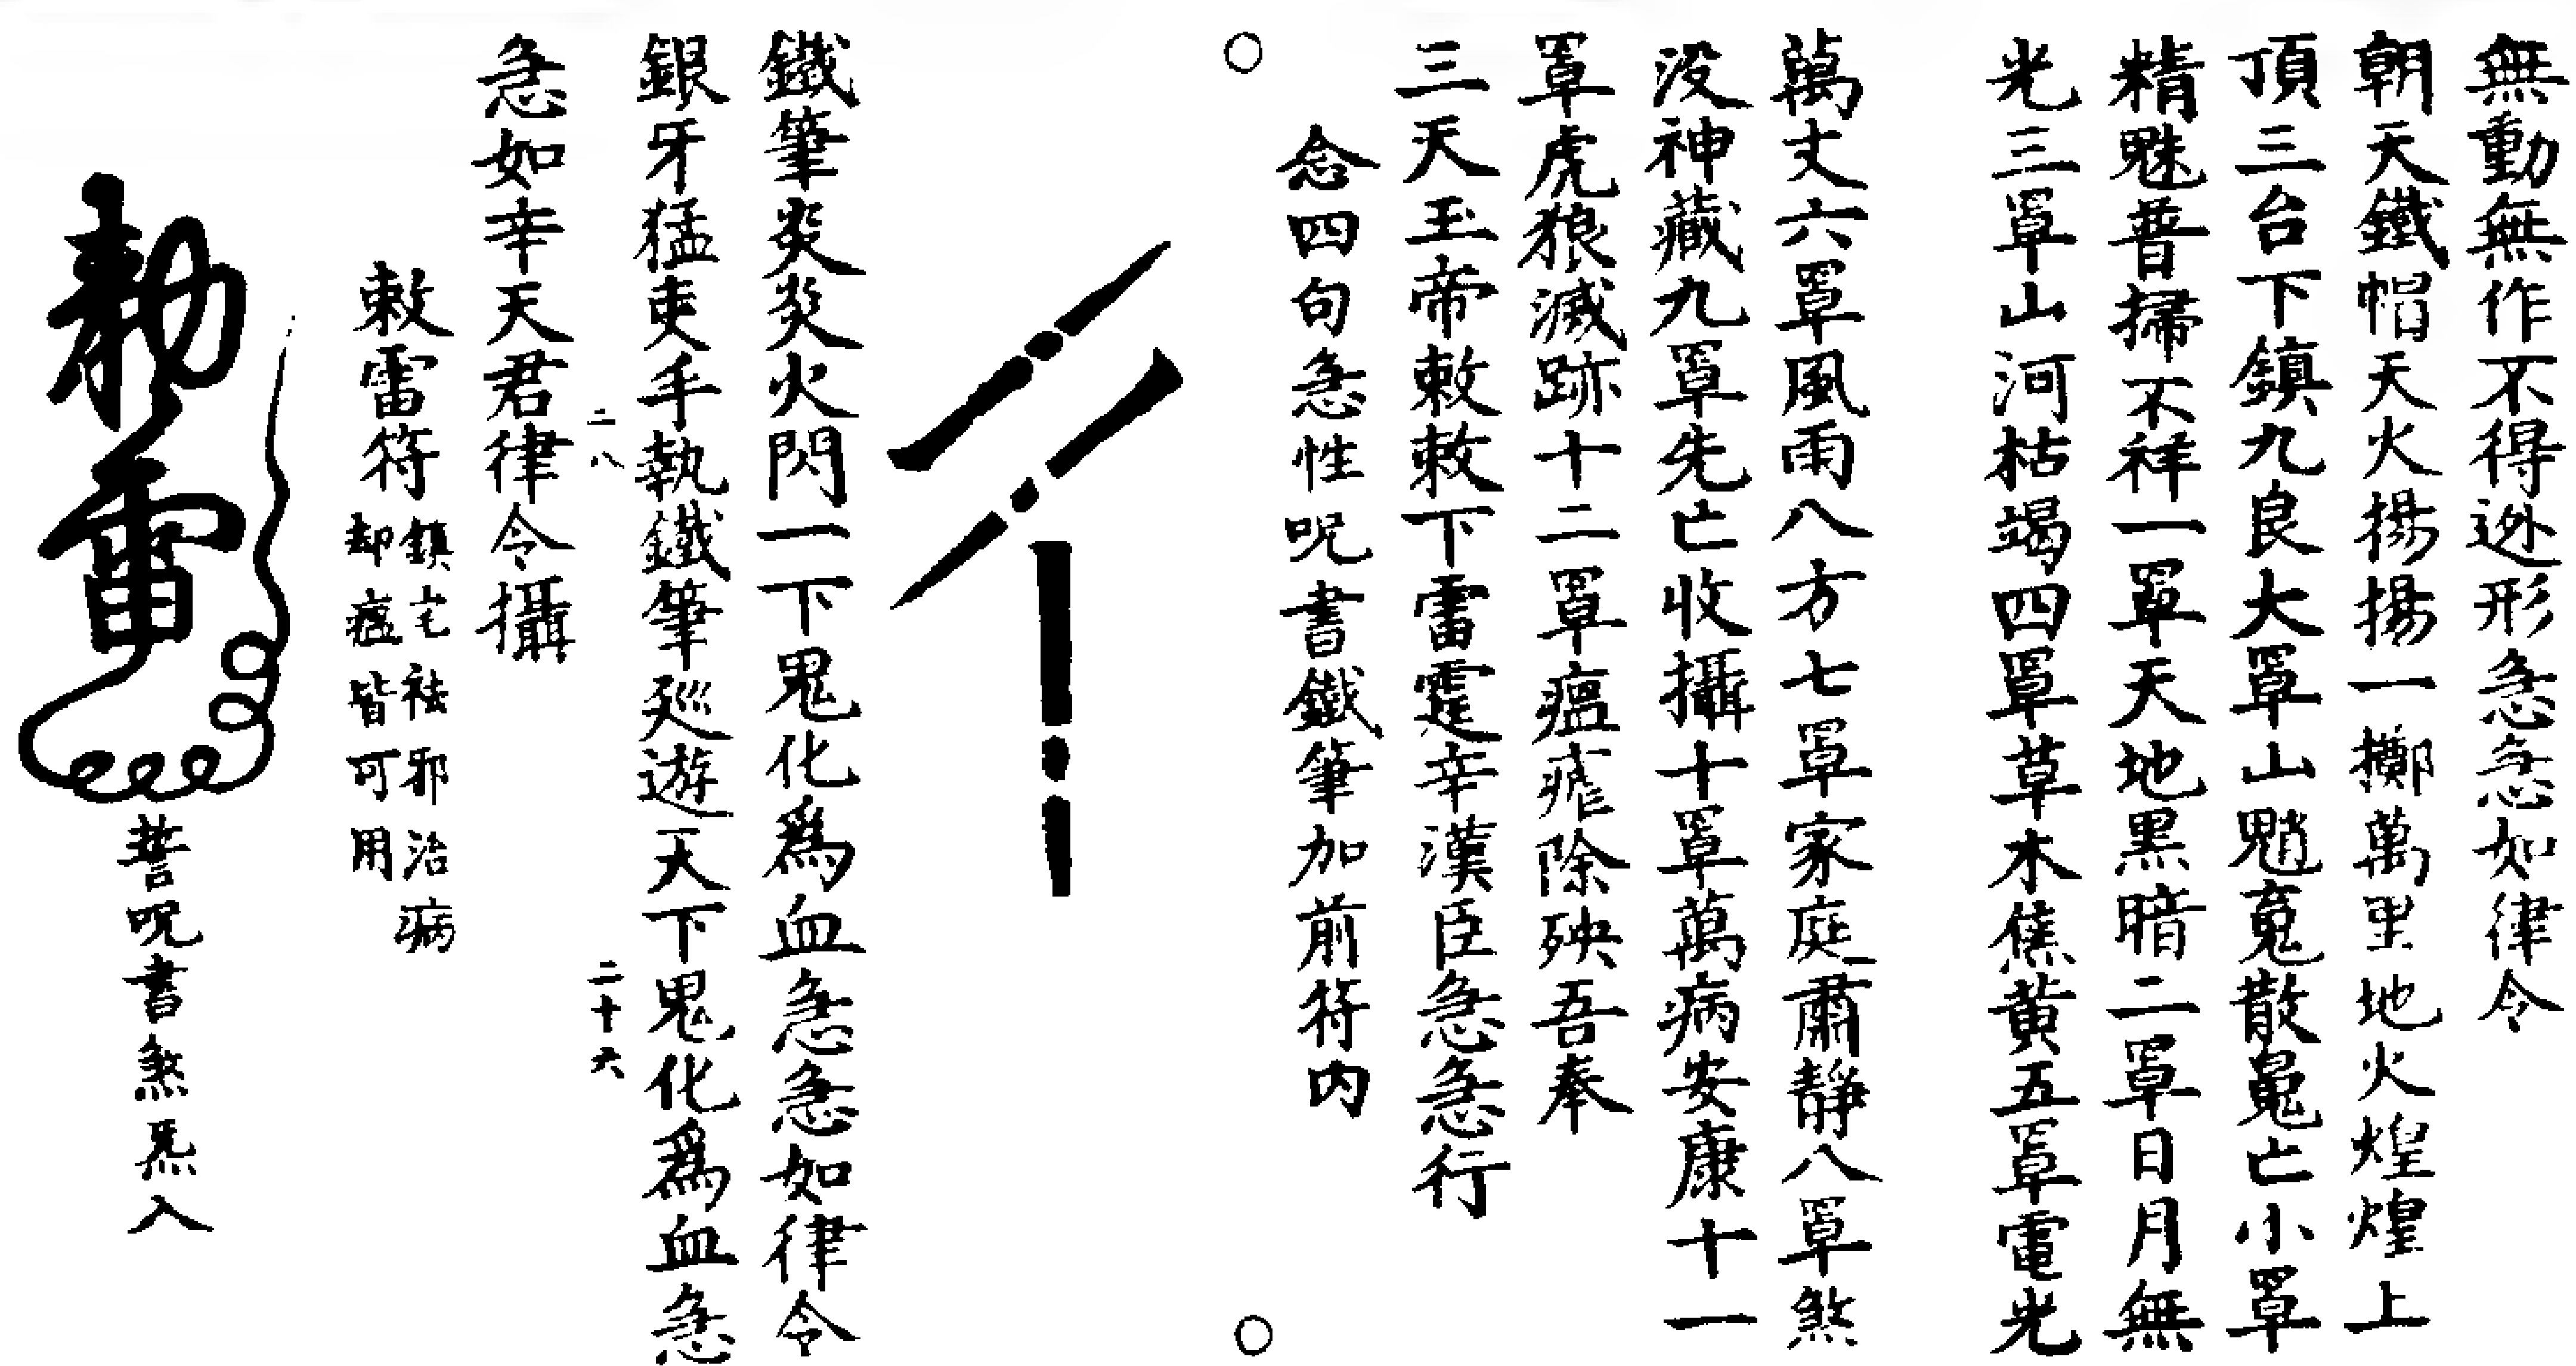 無動無作不得遯形急急如律令
朝天鐵帽天火揚揚一擲萬里地火煌煌上
頂三台下鎮九良大罩山魈魂散魄亡小罩
精魅普掃不祥一罩天地黑暗二罩日月無
光三罩山河枯竭四罩草木焦黃五罩電光
萬丈六罩風雨八方七罩家庭肅靜八罩煞
没神藏九罩先亡收攝十罩萬病安康十一
罩虎狼滅跡十二罩瘟瘧除殃吾奉
三天玉帝敕敕下雷霆辛漢臣急急行
念四句急性呪書鐵筆加前符内
鐵筆炎炎火閃一下鬼化爲血急急如律令
銀牙猛吏手執鐵筆巡遊天下鬼化爲血急
二八
二十六
急如辛天君律令攝
敕雷符
鎮宅祛邪治病
却瘟皆可用
勅雷
誓呪書煞炁入